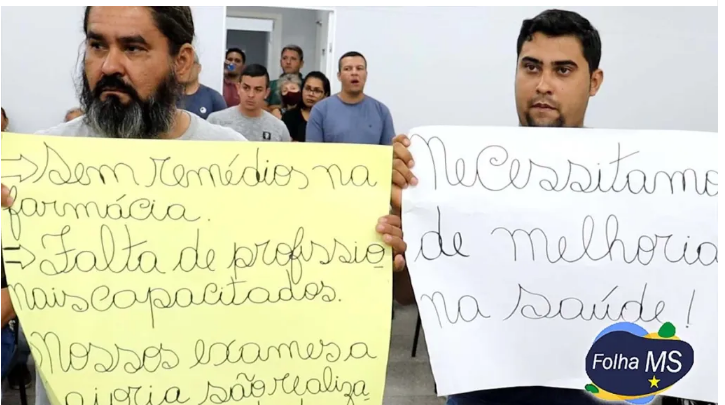 → Sem remédios na
farmácia.
→ Falta de profissio
nais capacitados.
Nossos exames a
aioria são realiza
Necessitamo
de melhoria
na saúde!
Folha MS